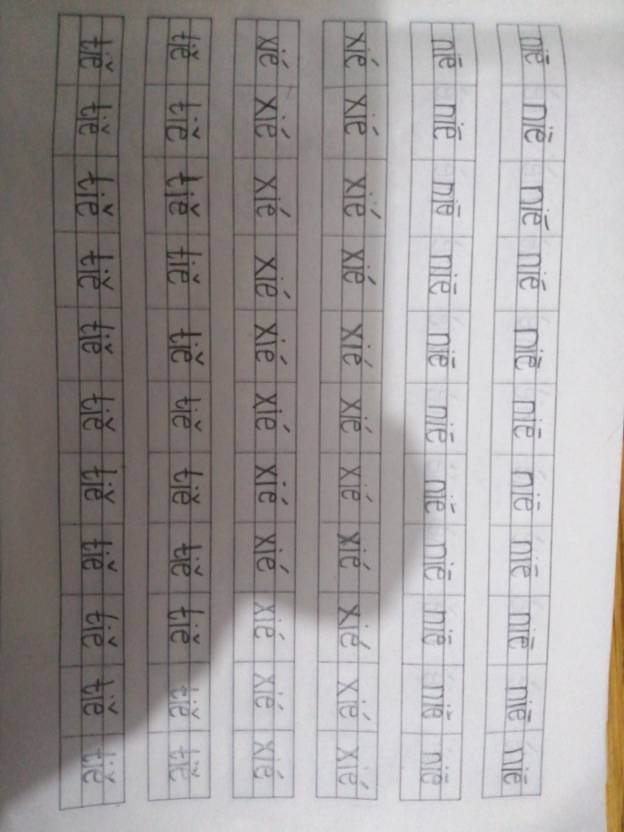 niē niē niē niē niē niē niē niē niē niē niē
niē niē niē niē niē niē niē niē niē niē niē
xié xié xié xié xié xié xié xié xié xié xié
xié xié xié xié xié xié xié xié xié xié xié
tiě tiě tiě tiě tiě tiě tiě tiě tiě tiě tiě
tiě tiě tiě tiě tiě tiě tiě tiě tiě tiě tiě